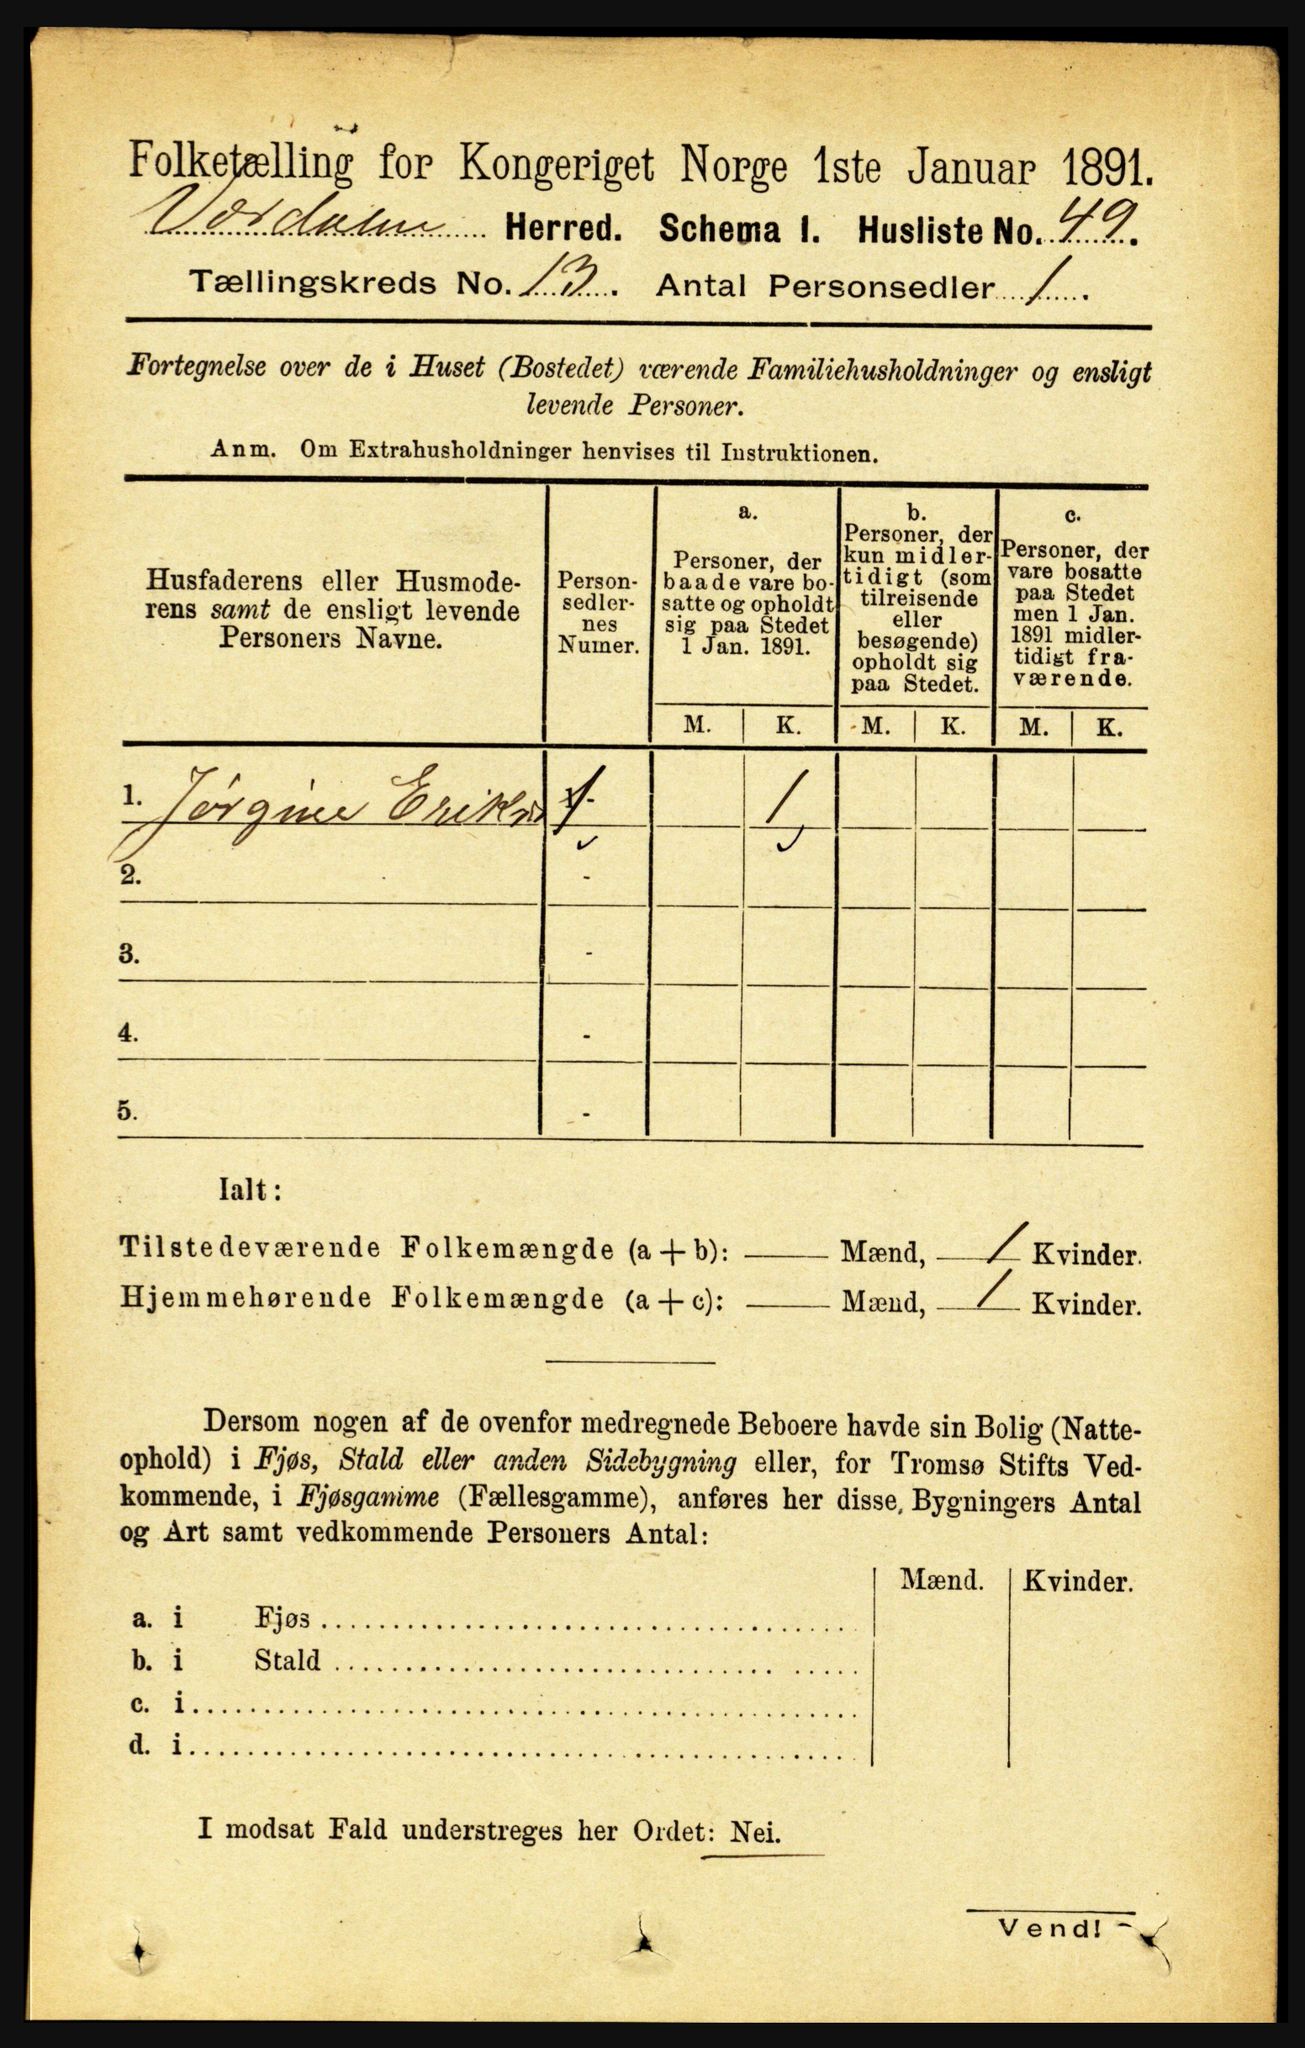 Folketælling for Kongeriget Norge 1ste Januar 1891.
Værdalen Herred. Schema I. Husliste No. 49.
Tællingskreds No. 13. Antal Personsedler 1.
Fortegnelse over de i Huset (Bostedet) værende Familiehusholdninger og ensligt
levende Personer.
Anm. Om Extrahusholdninger henvises til Instruktionen.
Husfaderens eller Husmode-
rens samt de ensligt levende
Personers Navne.
Person-
sedler-
nes
Numer.
a.
Personer, der
baade vare bo-
satte og opholdt
sig paa Stedet
1 Jan. 1891.
b.
Personer, der
kun midler-
tidigt (som
tilreisende
eller
besøgende)
opholdt sig
paa Stedet.
c.
Personer, der
vare bosatte
paa Stedet
men 1 Jan.
1891 midler-
tidigt fra-
værende.
M. K. M. K. M. K.
1. Jørgine 1 - 1
2. -
3. -
4. -
5. -
Ialt:
Tilstedeværende Folkemængde (a + b): — Mænd, 1 Kvinder.
Hjemmehørende Folkemængde (a + c): — Mænd, 1 Kvinder.
Dersom nogen af de ovenfor medregnede Beboere havde sin Bolig (Natte-
ophold) i Fjøs, Stald eller anden Sidebygning eller, for Tromsø Stifts Ved-
kommende, i Fjøsgamme (Fællesgamme), anføres her disse Bygningers Antal
og Art samt vedkommende Personers Antal:
Mænd. Kvinder.
a. i Fjøs
b. i Stald
c. i
d. i
I modsat Fald understreges her Ordet: Nei.
Vend!